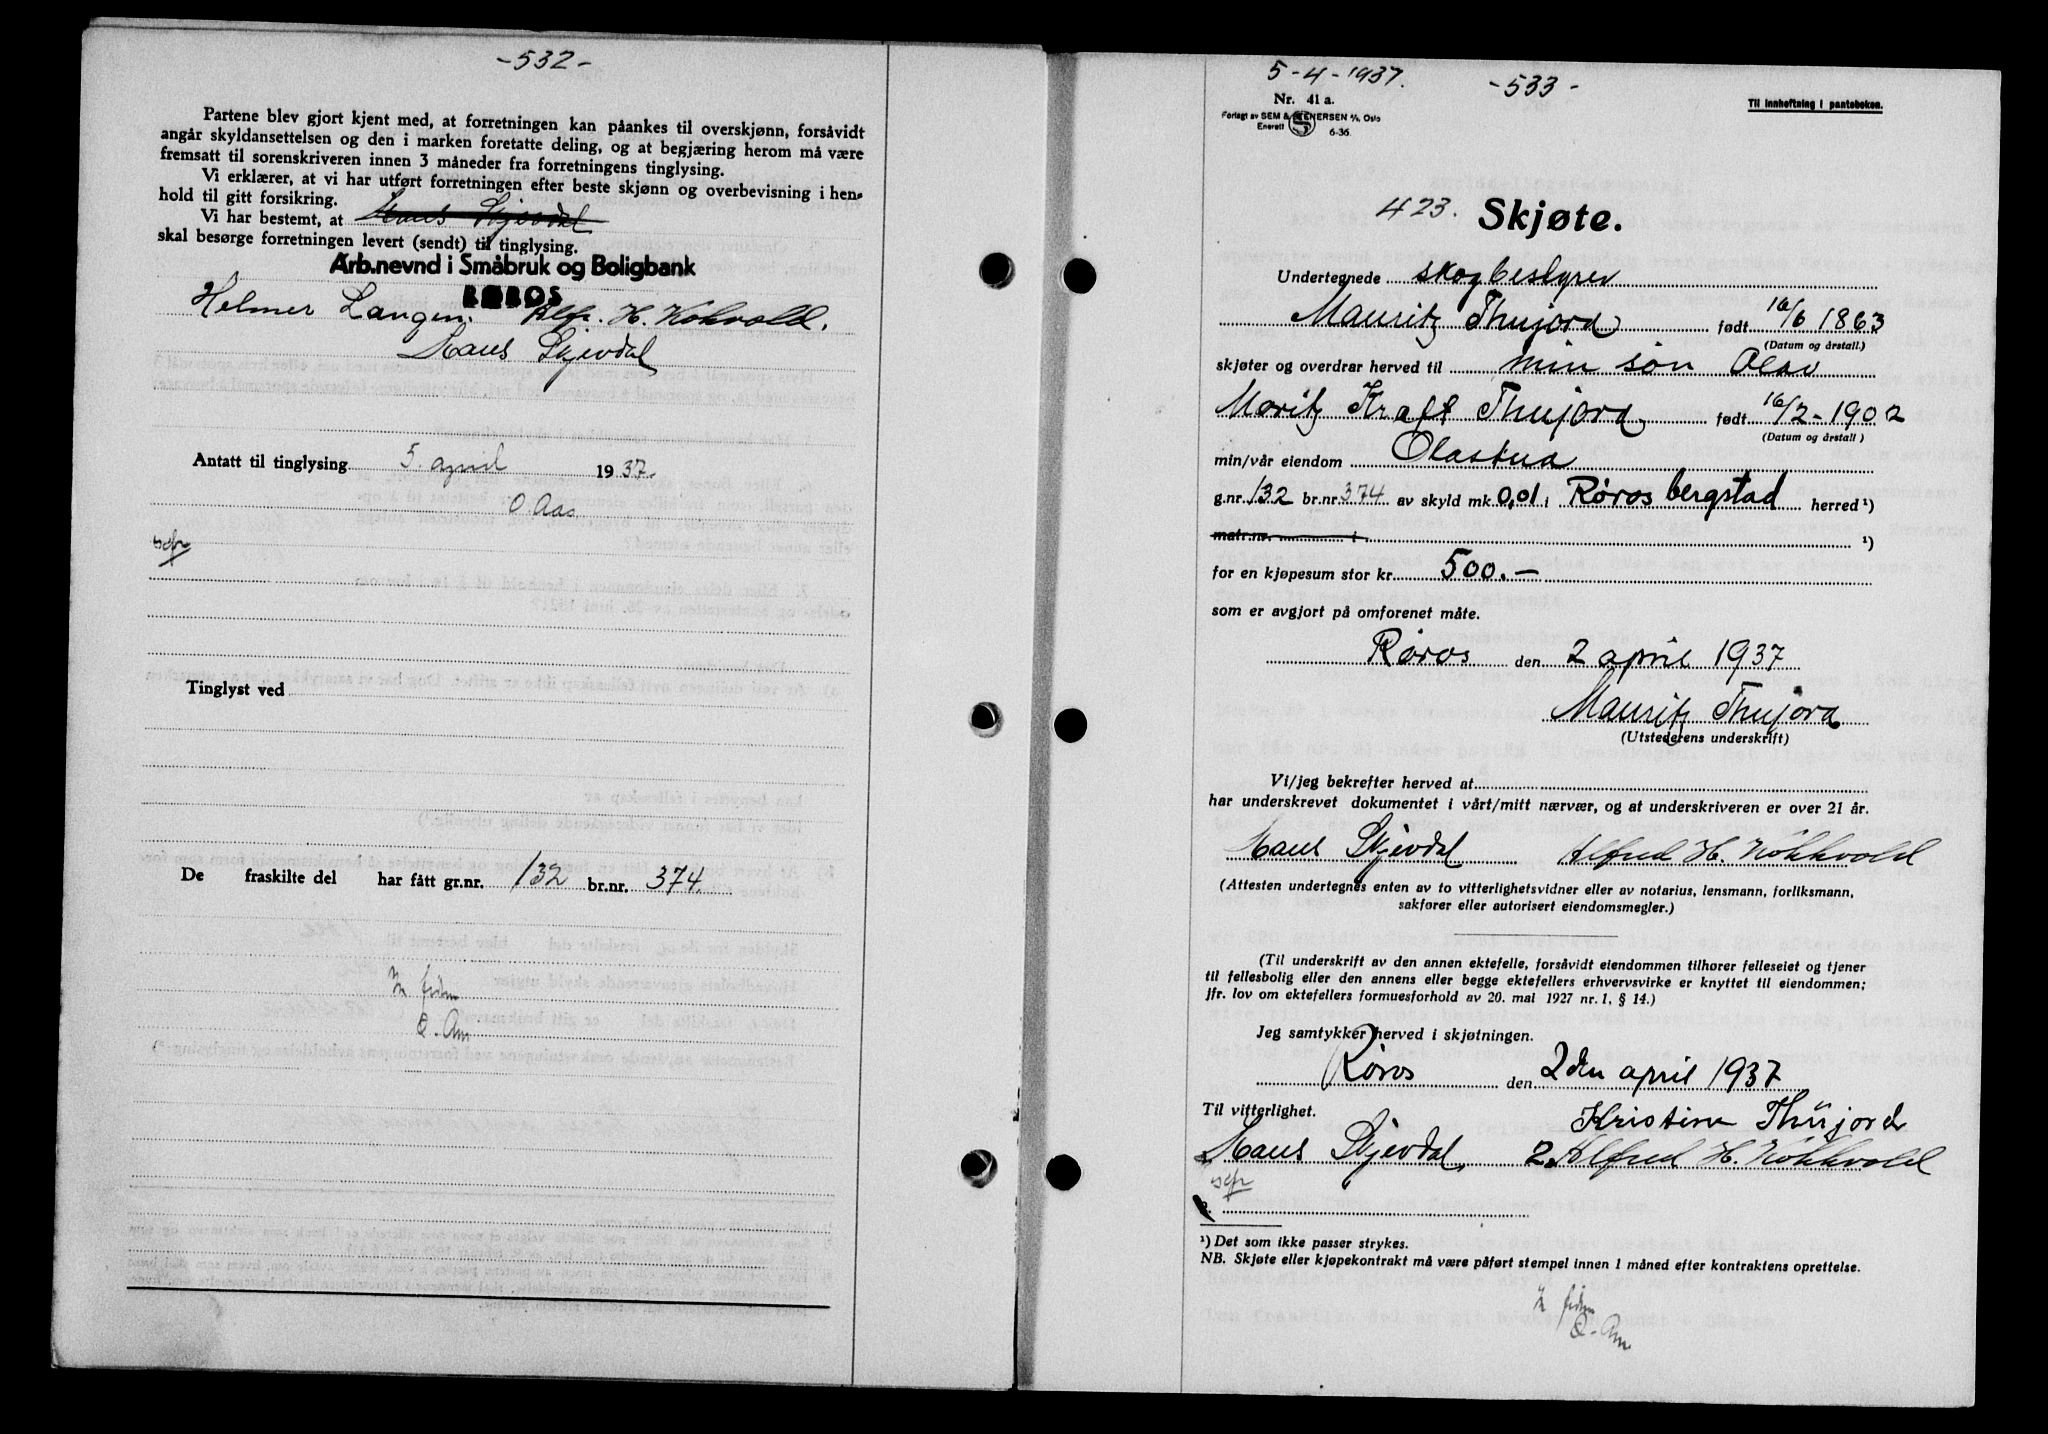 -532-
Partene blev gjort kjent med, at forretningen kan påankes til overskjønn, forsåvidt
angår skyldansettelsen og den i marken foretatte deling, og at begjæring herom må være
fremsatt til sorenskriveren innen 3 måneder fra forretningens tinglysing.
Vi erklærer, at vi har utført forretningen efter beste skjønn og overbevisning i hen-
hold til gitt forsikring.
Vi har bestemt, at Hans Skjevdal
skal besørge forretningen levert (sendt) til tinglysing.
Arb.nevnd i Småbruk og Boligbank
RØROS
Helmer Langen. Alfr. H. Kokvold.
Hans Skjevdal
Antatt til tinglysing 5. april 1937.
O. Aas
Tinglyst ved
De fraskilte del har fått gr.nr. 132 br.nr. 374.
5-4-1937. -533-
Nr. 41 a.
Til innheftning i panteboken.
Forlagt av SEM & STENERSEN A/S, Oslo
Enerett 6-36.
423. Skjøte.
Undertegnede skogbestyrer
Mauritz Thujord født 16/6 1863
(Datum og årstall.)
skjøter og overdrar herved til min søn Olav
Moritz Kraft Thujord født 16/2-1902
(Datum og årstall)
min/vår eiendom Olastua
g.nr. 132 br.nr. 374 av skyld mk. 0,01 i Røros bergstad herred ¹)
matr.nr. i ¹)
for en kjøpesum stor kr. 500.-
som er avgjort på omforenet måte.
Røros den 2 april 1937
Mauritz Thujord
(Utstederens underskrift)
Vi/jeg bekrefter herved at
har underskrevet dokumentet i vårt/mitt nærvær, og at underskriveren er over 21 år.
Hans Skjevdal Alfred H. Kokkvold
(Attesten undertegnes enten av to vitterlighetsvidner eller av notarius, lensmann, forliksmann,
sakfører eller autorisert eiendomsmegler.)
(Til underskrift av den annen ektefelle, forsåvidt eiendommen tilhører felleseiet og tjener
til fellesbolig eller den annens eller begge ektefellers erhvervsvirke er knyttet til eiendommen;
jfr. lov om ektefellers formuesforhold av 20. mai 1927 nr. 1, § 14.)
Jeg samtykker herved i skjøtningen.
Røros den 2den april 1937
Til vitterlighet.
Kristine Thüjord
Hans Skjevdal 2. Alfred H. Kokkvold
¹) Det som ikke passer strykes.
NB. Skjøte eller kjøpekontrakt må være påført stempel innen 1 måned efter kontraktens oprettelse.